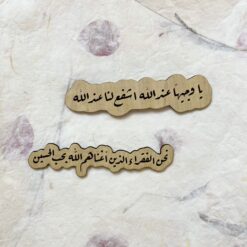 يا وجيها عند الله اشفع لنا عند الله
نحن الفقراء الذين أغناهم الله بحب الحسين